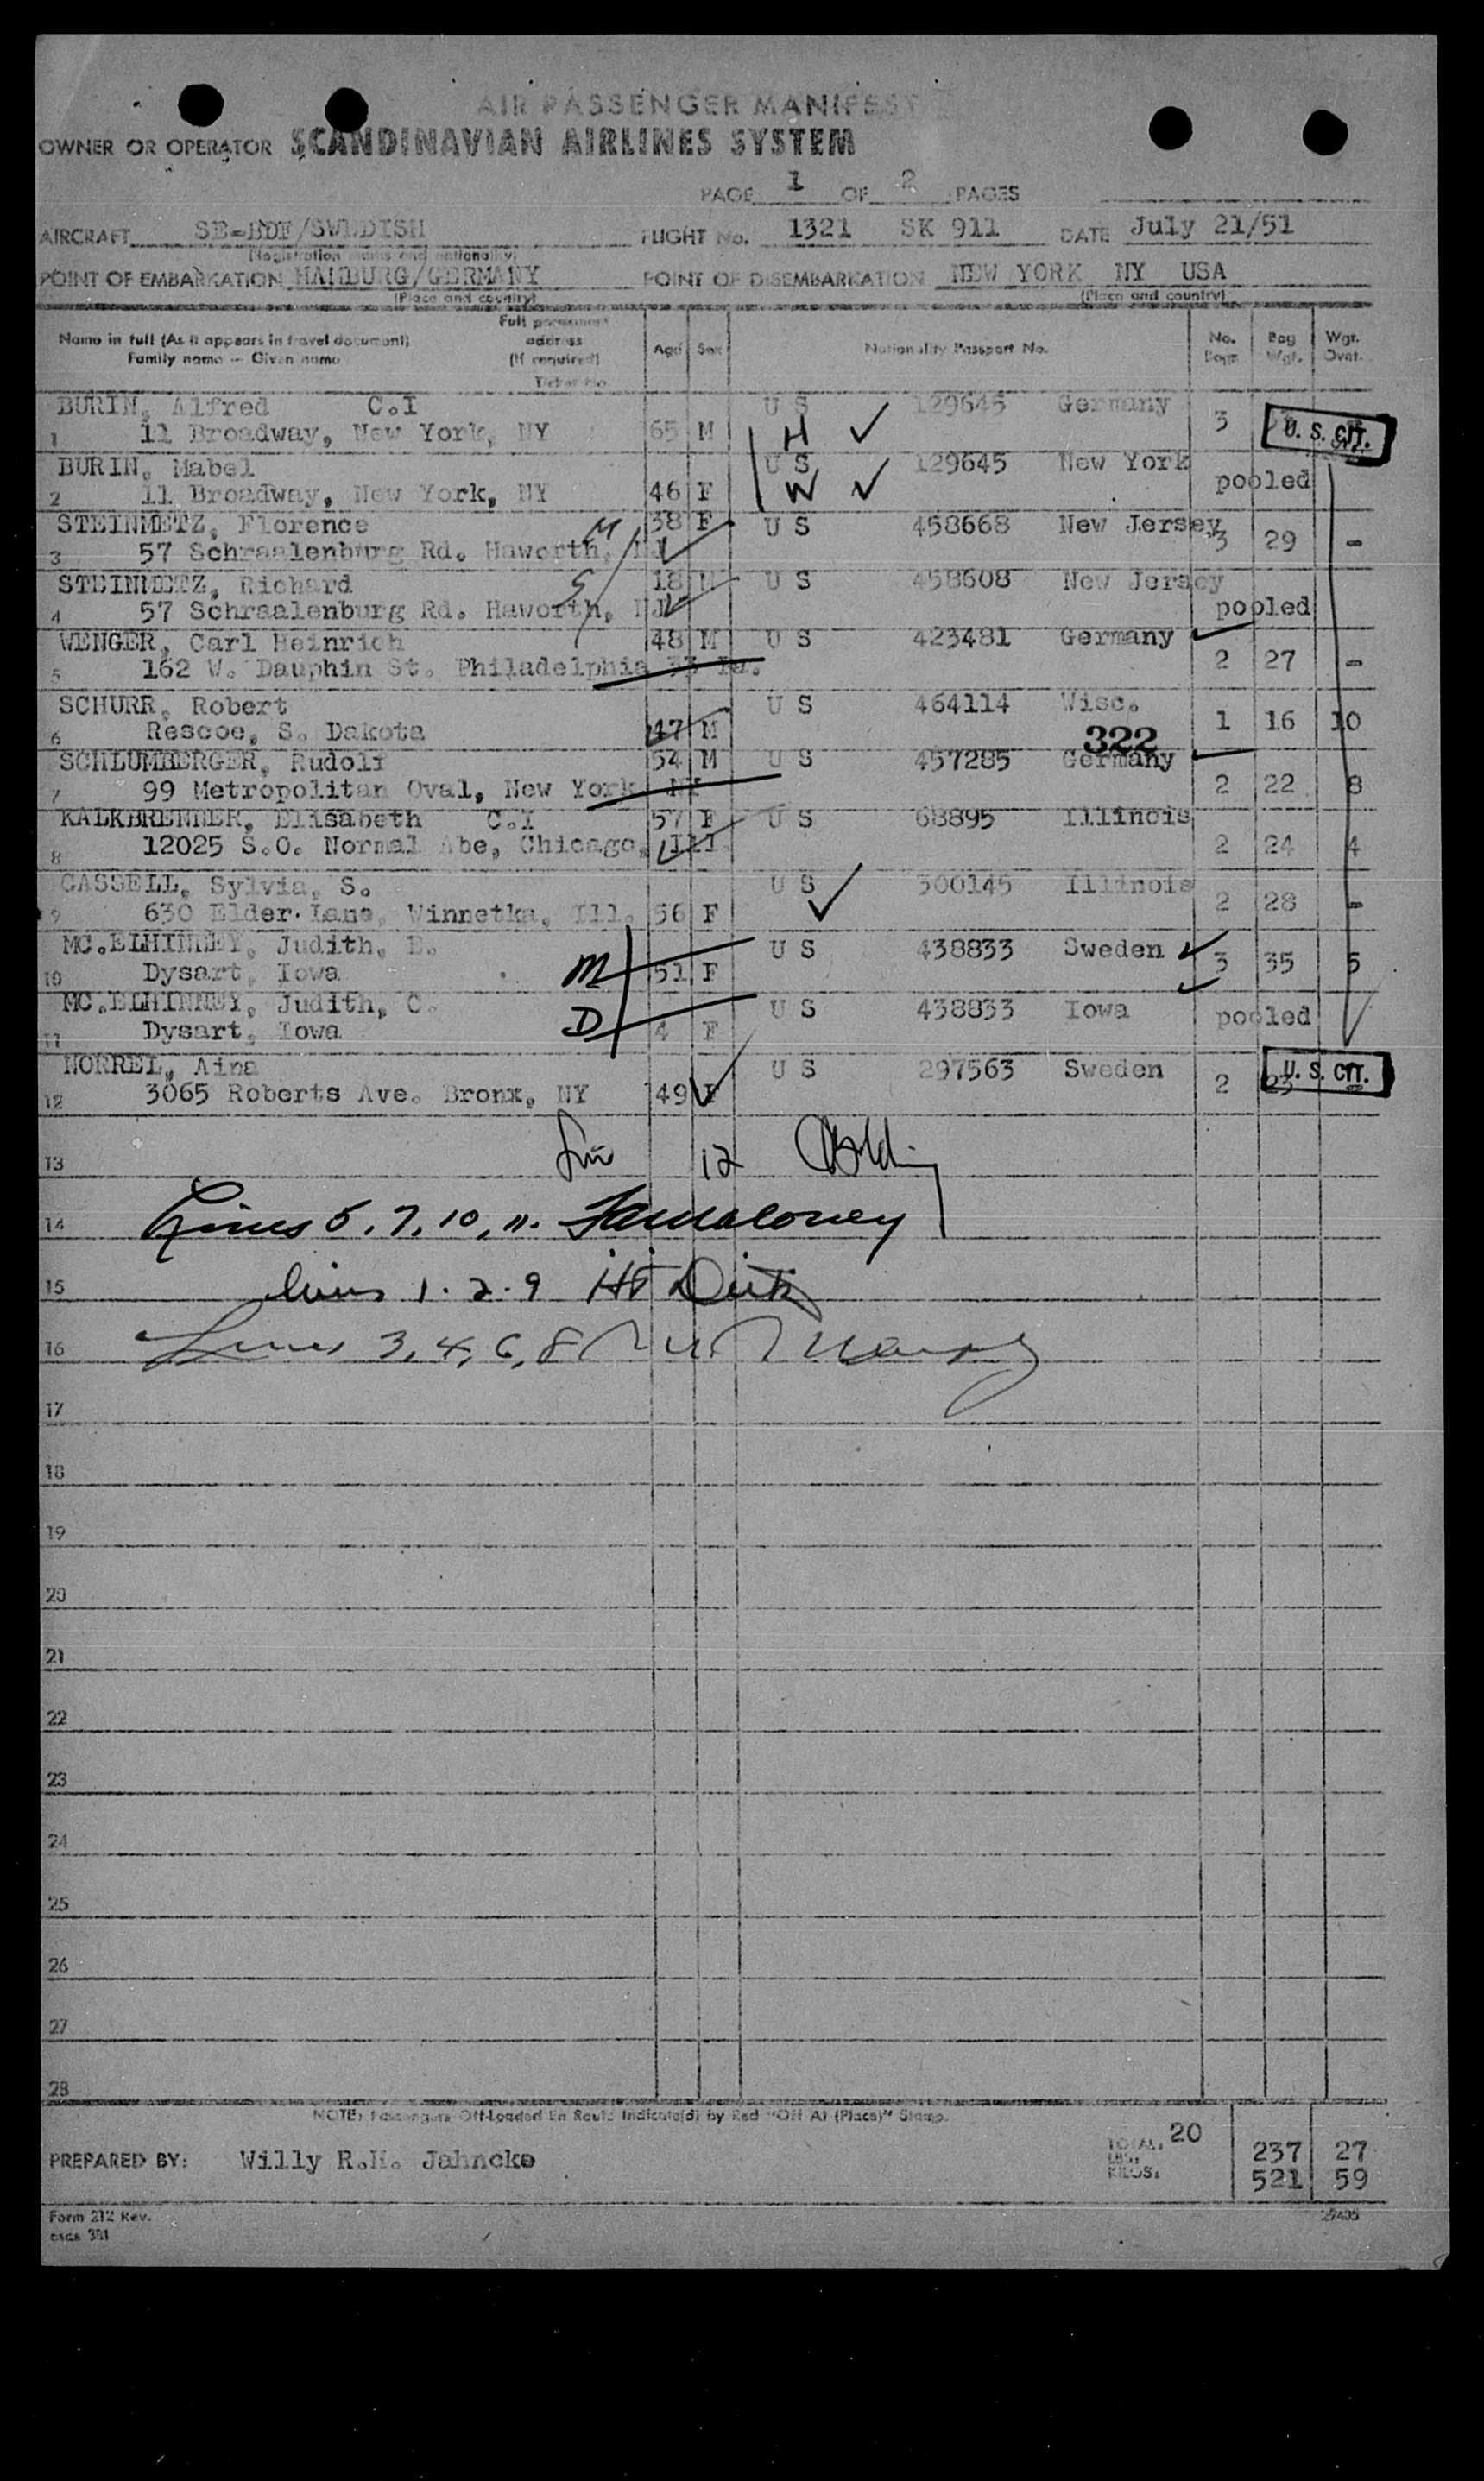 AIR PASSENGER MANIFEST
OWNER OR OPERATOR SCANDINAVIAN AIRLINES SYSTEM
PAGE 1 OF 2 PAGES
AIRCRAFT SE-BDF/SWEDISH FLIGHT No. 1321 SK 911 DATE July 21/51
(Registration marks and nationality)
POINT OF EMBARKATION HAMBURG/GERMANY POINT OF DISEMBARKATION NEW YORK NY USA
(Place and country) (Place and country)
Name in full (As it appears in travel document) Full permanent address Age Sex Nationality Passport No. No. Bag Wgt.
Family name — Given name (If required) Wgt.
Ticket No.
BURIN, Alfred C.I U S 129645 Germany
1 11 Broadway, New York, NY 65 M H 3 U. S. CIT.
BURIN, Mabel U S 129645 New York
2 11 Broadway, New York, NY 46 F W pooled
STEINMETZ, Florence 38 F U S 458668 New Jersey
3 57 Schraalenburg Rd. Haworth, NJ M 3 29 -
STEINMETZ, Richard 18 M U S 458608 New Jersey
4 57 Schraalenburg Rd. Haworth, NJ S pooled
WENGER, Carl Heinrich 48 M U S 423481 Germany
5 162 W. Dauphin St. Philadelphia 33 Pa. 2 27 -
SCHURR, Robert U S 464114 Wisc.
6 Rescoe, S. Dakota 47 M 1 16 10
322
SCHLUMBERGER, Rudolf 54 M U S 457285 Germany
7 99 Metropolitan Oval, New York NY 2 22 8
KALKBRENNER, Elisabeth C.I 57 F U S 68895 Illinois
8 12025 S.O. Normal Abe, Chicago, Ill. 2 24 4
CASSELL, Sylvia, S. U S 300145 Illinois
9 630 Elder Lane, Winnetka, Ill. 56 F 2 28 -
MC.ELHINNEY, Judith, E. U S 438833 Sweden
10 Dysart, Iowa M 51 F 3 35 5
MC.ELHINNEY, Judith, C. U S 438833 Iowa
11 Dysart, Iowa D 4 F pooled
NORREL, Aina U S 297563 Sweden
12 3065 Roberts Ave. Bronx, NY 49 F 2 23 U. S. CIT.
13 12
14 Lines 5, 7, 10, 11.
15 lines 1. 2. 9
16 Lines 3, 4, 6, 8
17
18
19
20
21
22
23
24
25
26
27
28
NOTE: Passengers Off-Loaded En Route Indicate(d) by Red "Off At (Place)" Stamp.
PREPARED BY: Willy R.H. Jahncke TOTAL: 20 237 27
LBS:
KILOS: 521 59
Form 212 Rev.